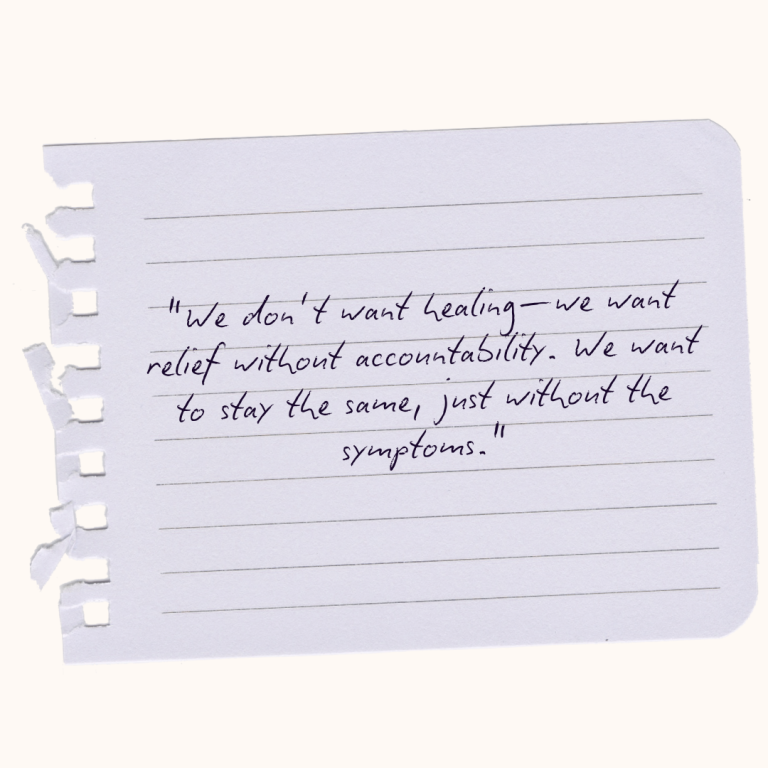 "We don't want healing—we want
relief without accountability. We want
to stay the same, just without the
symptoms."